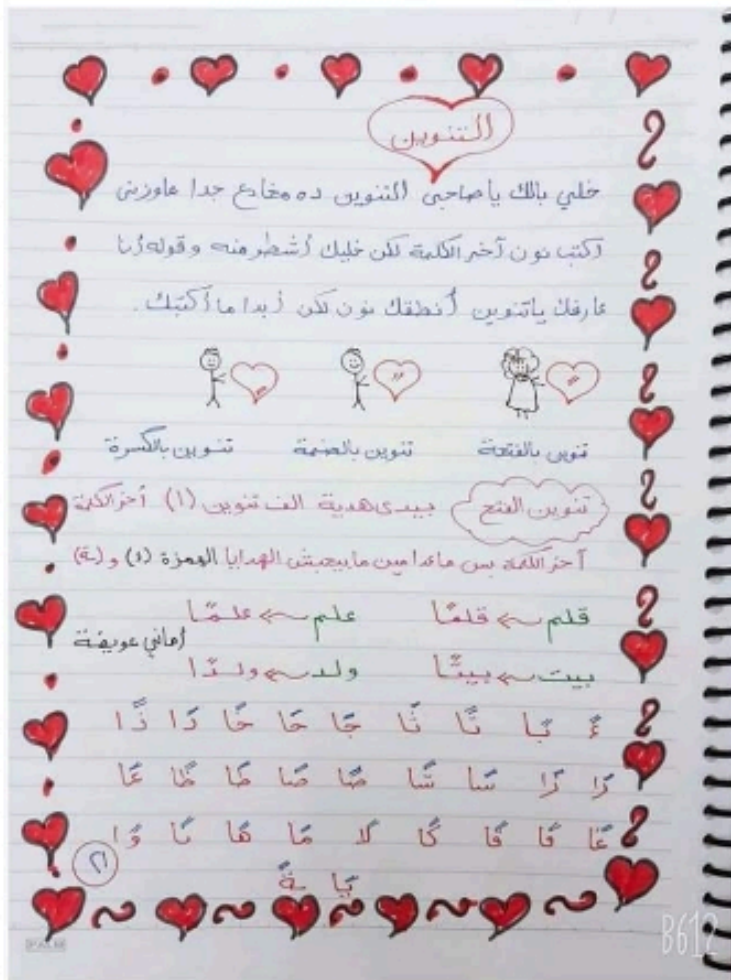 التنوين
خلي بالك يا صاحبي التنوين ده مخادع جدا عاوزني
اكتب نون آخر الكلمة لكن خليك أشطر منه وقوله أنا
عارفك يا تنوين أنطقك نون لكن أبدا ما أكتبك.
تنوين بالفتحة تنوين بالضمة تنوين بالكسرة
تنوين الفتح بيدي هدية الف تنوين (ا) أخر الكلمة
أخر الكلمة بس ماعدا مين مابيحبش الهدايا الهمزة (ء) و (ة)
قلم ← قلمًا علم ← علمًا
أماني عويضة
بيت ← بيتًا ولد ← ولدًا
ءً بًا تًا ثًا جًا حًا خًا دًا ذًا
رًا زًا سًا شًا صًا ضًا طًا ظًا عًا
غًا فًا قًا كًا لًا مًا هًا نًا وًا
يًا ةً
٢١
B612